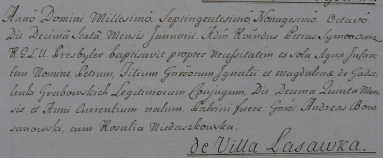 Anno Domini Millesimo, Septingentesimo Nonagesimo Octavo
Die Decima Sexta Mensis Januarii. Adm Rvndus Petrus Symonowicz
R.G.L.U. Presbyter baptisavit propter necessitatem ex sola Aqua Infan
tem Nomine Petrum, Filium Gnrorum Ignatii et Magdalenæ de
Grabowskich Legitimorum Conjugum, Die Decima Quinta Men
sis et Anni Currentium natum. Patrini fuere. Gnsus Andreas
cum Rosalia
de Villa Lasawka.